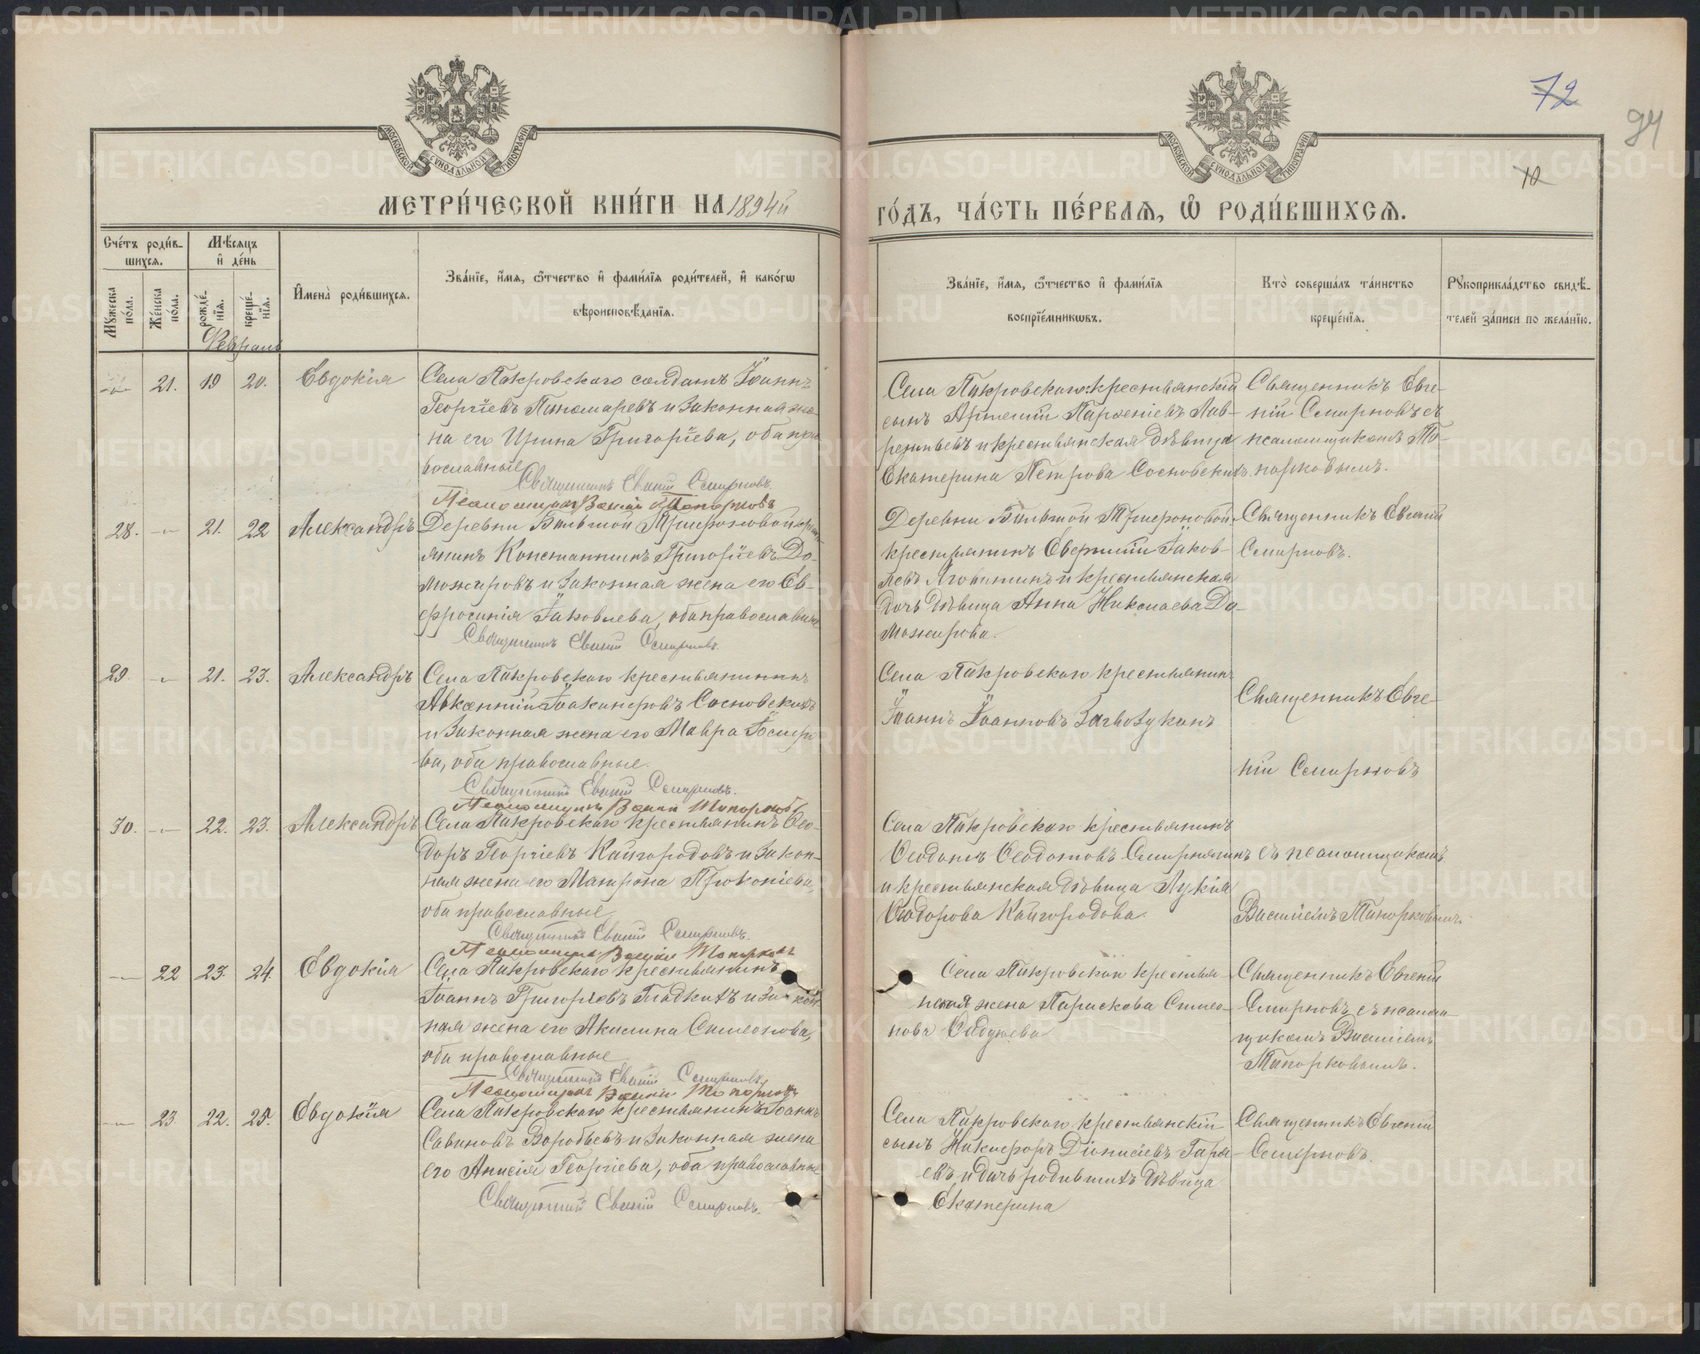 72
94
10
МОСКОВСКОЙ СѴНОДАЛЬНОЙ ТИПОГРАФІИ
МОСКОВСКОЙ СѴНОДАЛЬНОЙ ТИПОГРАФІИ
МЕТРИ́ЧЕСКОЙ КНИ́ГИ НА 1894й
ГО́ДЪ, ЧА́СТЬ ПЕ́РВАЯ, Ѽ РОДИ́ВШИХСЯ.
Сче́тъ роди́в-
шихся.
Мѣ́сяцъ
и҆ де́нь
Мꙋ́жеска
по́ла.
Же́нска
пола.
рожде́-
нїя.
креще́-
нїя.
И҆мена̀ роди́вшихся.
Зва́нїе, и҆́мѧ, ѻ҆́тчество и҆ фами́лїя роди́телей, и҆ како́гѡ
вѣроисповѣ́данїя.
Зва́нїе, и҆́мѧ, ѻ҆́тчество и҆ фами́лїя
воспрїе́мникѡвъ.
Кто̀ соверша́лъ та́инство
креще́нїя.
Рꙋкоприкла́дство свидѣ́-
телей за́писи по жела́нїю.
Февраль
21. 19 20. Евдокія
Села Покровскаго солдатъ Іоаннъ
Георгіевъ Пономаревъ и законная же-
на его Ирина Григоріева, оба пра-
вославные
Священникъ Евгеній Смирновъ.
Псаломщикъ Василій Топорковъ
Села Покровскаго крестьянскій
сынъ Артемій Парѳеніевъ Лав-
рентьевъ и крестьянская дѣвица
Екатерина Петрова Сосновскихъ
Священникъ Евге-
ній Смирновъ съ
псаломщикомъ То-
порковымъ.
28. 21. 22 Александръ
Деревни Большой Трифоновой крест-
янинъ Константинъ Григоріевъ До-
можировъ и законная жена его Ев-
фросинія Іаковлева, оба православные
Священникъ Евгеній Смирновъ
Деревни Большой Трифоновой
крестьянинъ Іаков-
левъ и крестьянская
дочь дѣвица Анна Николаева До-
можирова.
Священникъ Евгеній
Смирновъ.
29. 21. 23. Александръ
Села Покровскаго крестьянинъ
Авксентій Іоакимовъ Сосновскихъ
и законная жена его Мавра
ва, оба православные.
Священникъ Евгеній Смирновъ.
Псаломщикъ Василій Топорковъ
Села Покровскаго крестьянинъ
Іоаннъ Іоанновъ
Священникъ Евге-
ній Смирновъ
30. 22. 23. Александръ
Села Покровскаго крестьянинъ Ѳео-
доръ Георгіевъ Кайгородовъ и закон-
ная жена его Матрона Прокопіева,
оба православные
Священникъ Евгеній Смирновъ.
Псаломщикъ Василій Топорковъ
Села Покровскаго крестьянинъ
Ѳеодотъ Ѳеодотовъ
и крестьянская дѣвица Лукія
Ѳеодорова Кайгородова.
съ псаломщикомъ
Василіемъ Топорковымъ.
22 23. 24 Евдокія
Села Покровскаго крестьянинъ
Іоаннъ Григорьевъ Гладкихъ и закон-
ная жена его Акилина Симеонова,
оба православные
Священникъ Евгеній Смирновъ
Псаломщикъ Василій Топорковъ
Села Покровскаго крестьян-
ская жена Параскева Симео-
нова
Священникъ Евгеній
Смирновъ съ псалом-
щикомъ Василіемъ
Топорковымъ.
23 22. 25. Евдокія
Села Покровскаго крестьянинъ Іоаннъ
Савиновъ Воробьевъ и законная жена
его Анисія Георгіева, оба православные
Священникъ Евгеній Смирновъ.
Села Покровскаго крестьянскій
сынъ Никифоръ Діонисіевъ
и дочь родившихъ дѣвица
Екатерина
Священникъ Евгеній
Смирновъ.
METRIKI.GASO-URAL.RU